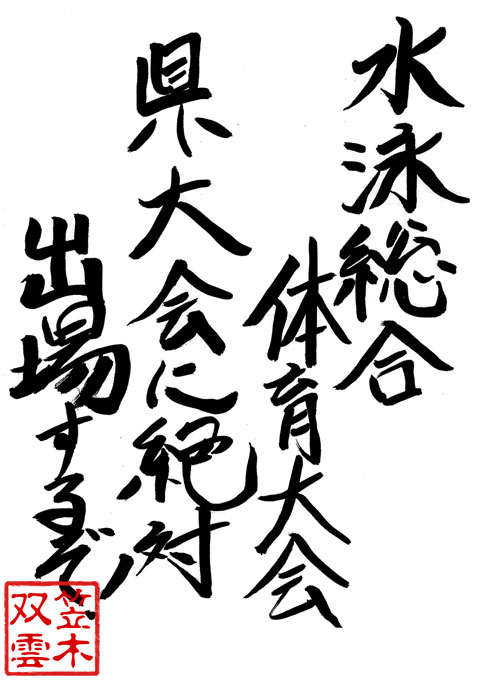 水泳総合
体育大会
県大会に絶対
出場するぞ、
笠木
双雲